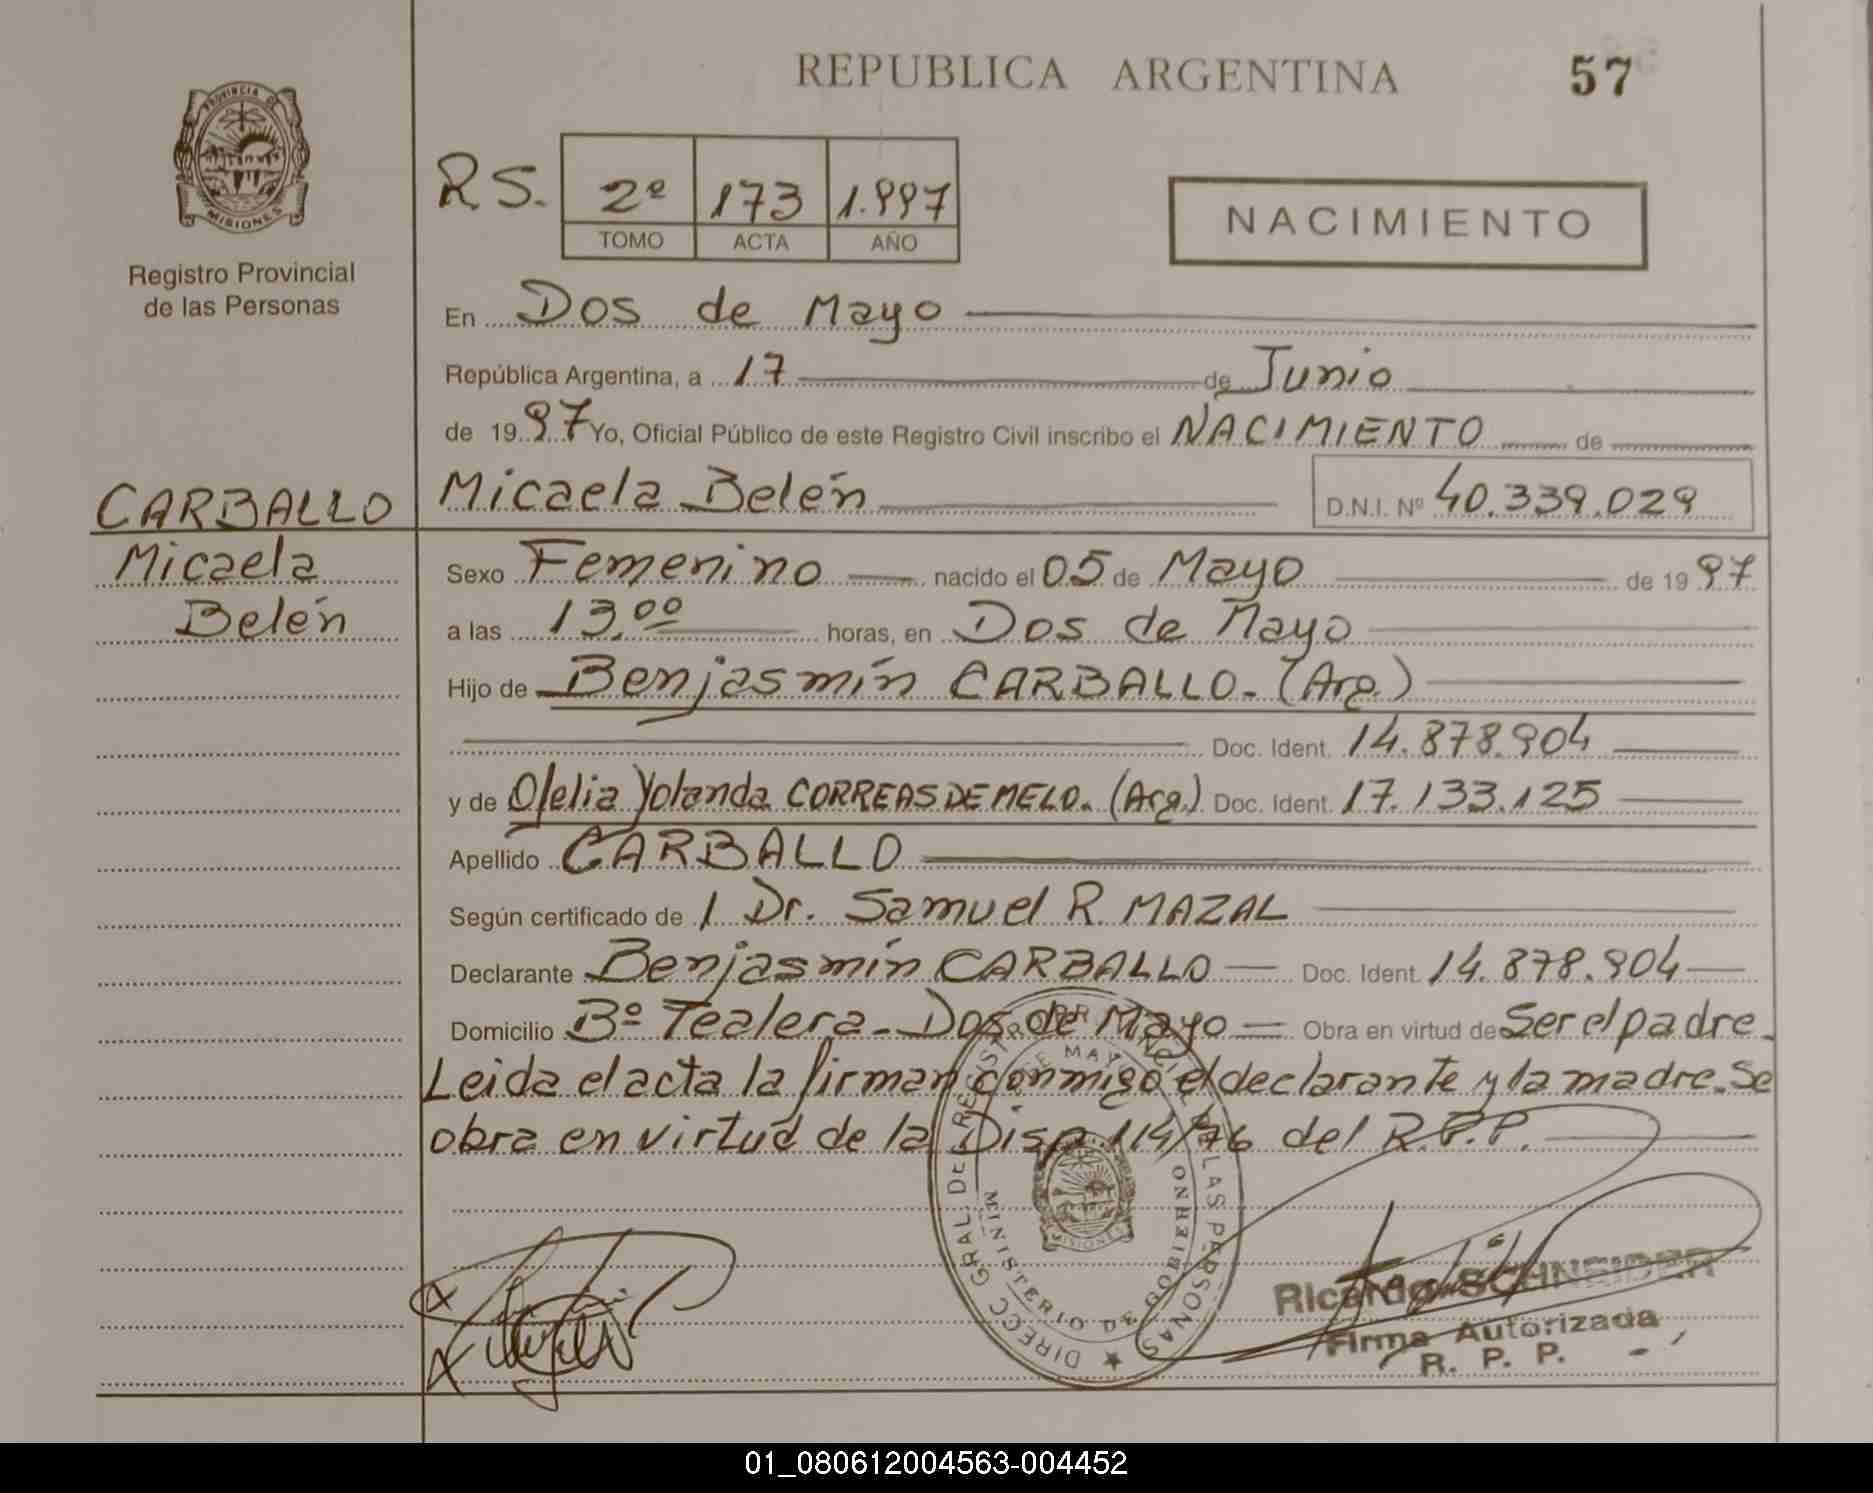 REPUBLICA ARGENTINA
57
PROVINCIA DE
MISIONES
Registro Provincial
de las Personas
R.S.
2º 173 1.997
TOMO ACTA AÑO
NACIMIENTO
En Dos de Mayo
República Argentina, a 17 de Junio
de 1997 Yo, Oficial Público de este Registro Civil inscribo el NACIMIENTO de
CARBALLO
Micaela
Belén
Micaela Belén D.N.I. Nº 40.339.029
Sexo Femenino nacido el 05 de Mayo de 1997
a las 13,00 horas, en Dos de Mayo
Hijo de Benjasmín CARBALLO.- (Arg.)
Doc. Ident. 14.878.904
y de Ofelia Yolanda CORREAS DE MELO.- (Arg.) Doc. Ident. 17.133.125
Apellido CARBALLO
Según certificado de 1 Dr. Samuel R. MAZAL
Declarante Benjasmín CARBALLO Doc. Ident. 14.878.904
Domicilio Bº Tealera - Dos de Mayo Obra en virtud de Ser el padre.
Leida el acta la firman conmigo el declarante y la madre. Se
obra en virtud de la Disp 114/76 del R.P.P.
DIRECC GRAL. DEL REGISTRO PROVINCIAL DE LAS PERSONAS
MINISTERIO DE GOBIERNO
MISIONES
Ricardo SCHNEIDER
Firma Autorizada
R. P. P.
01_080612004563-004452